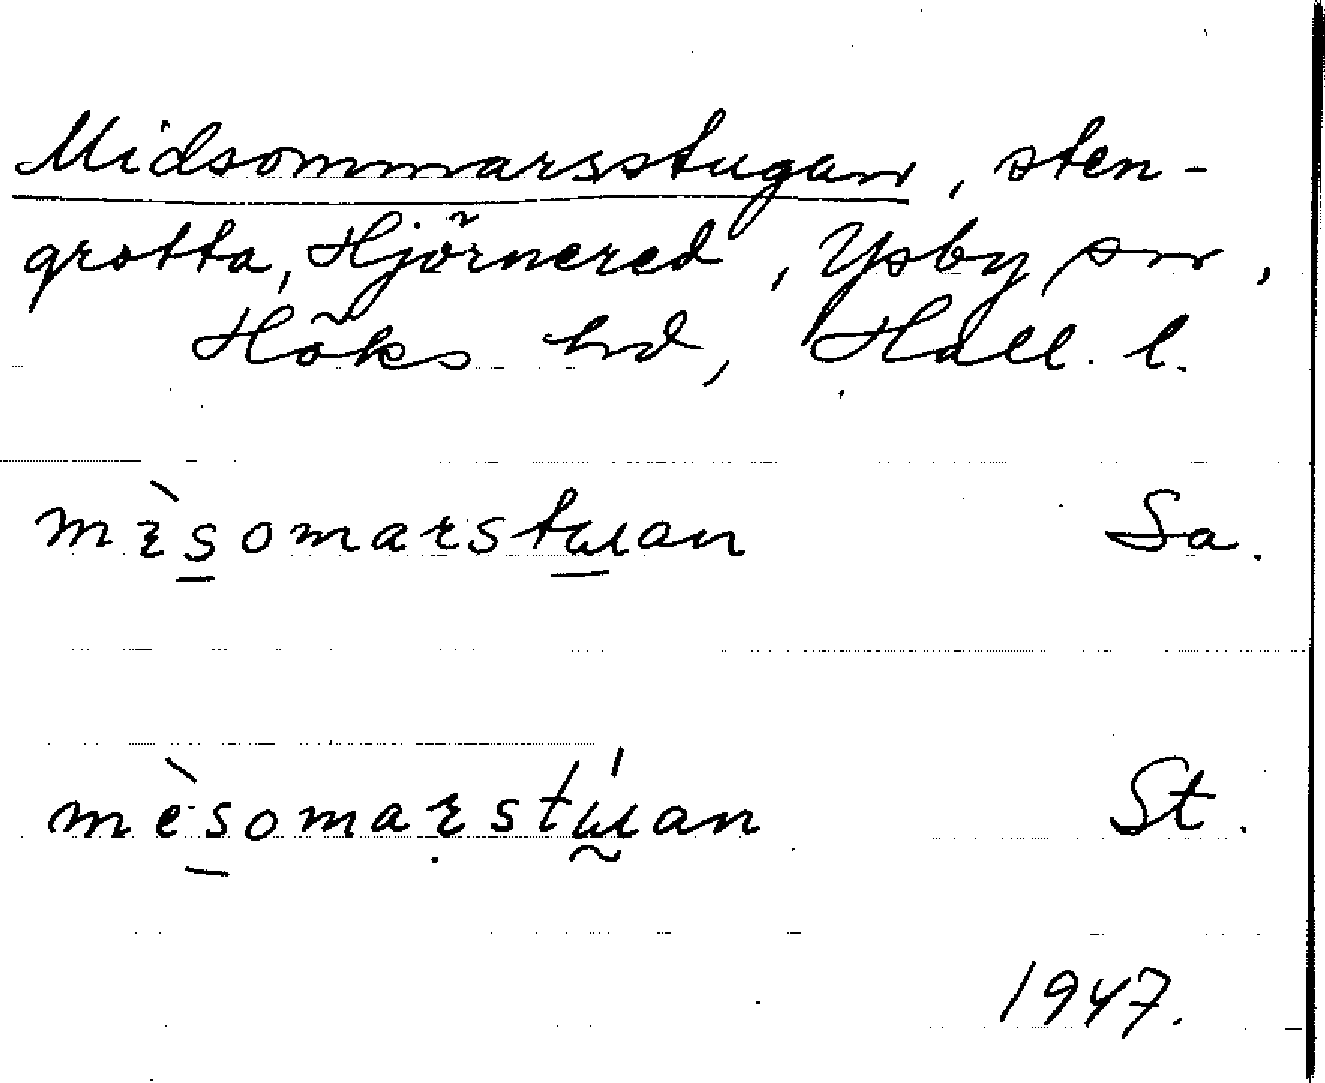 Midsommarsstugan, sten-
grotta, Hjörnered, Ysby sn,
Höks hd, Hall. l.
mèsomarstuan Sa.
mèsomarstúan St.
1947.